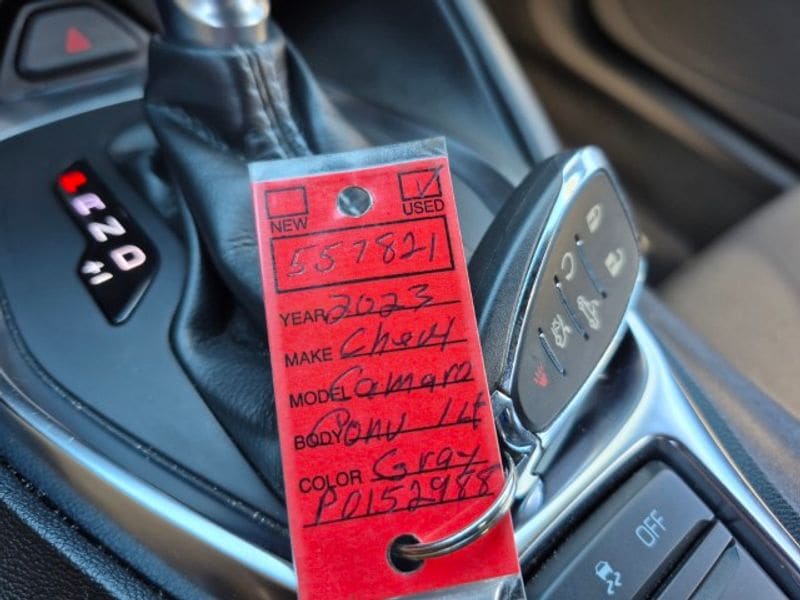 R
N
D
NEW USED
557821
YEAR 2023
MAKE Chevy
MODEL Camaro
BODY Conv 1Lt
COLOR Gray
P0152988
OFF